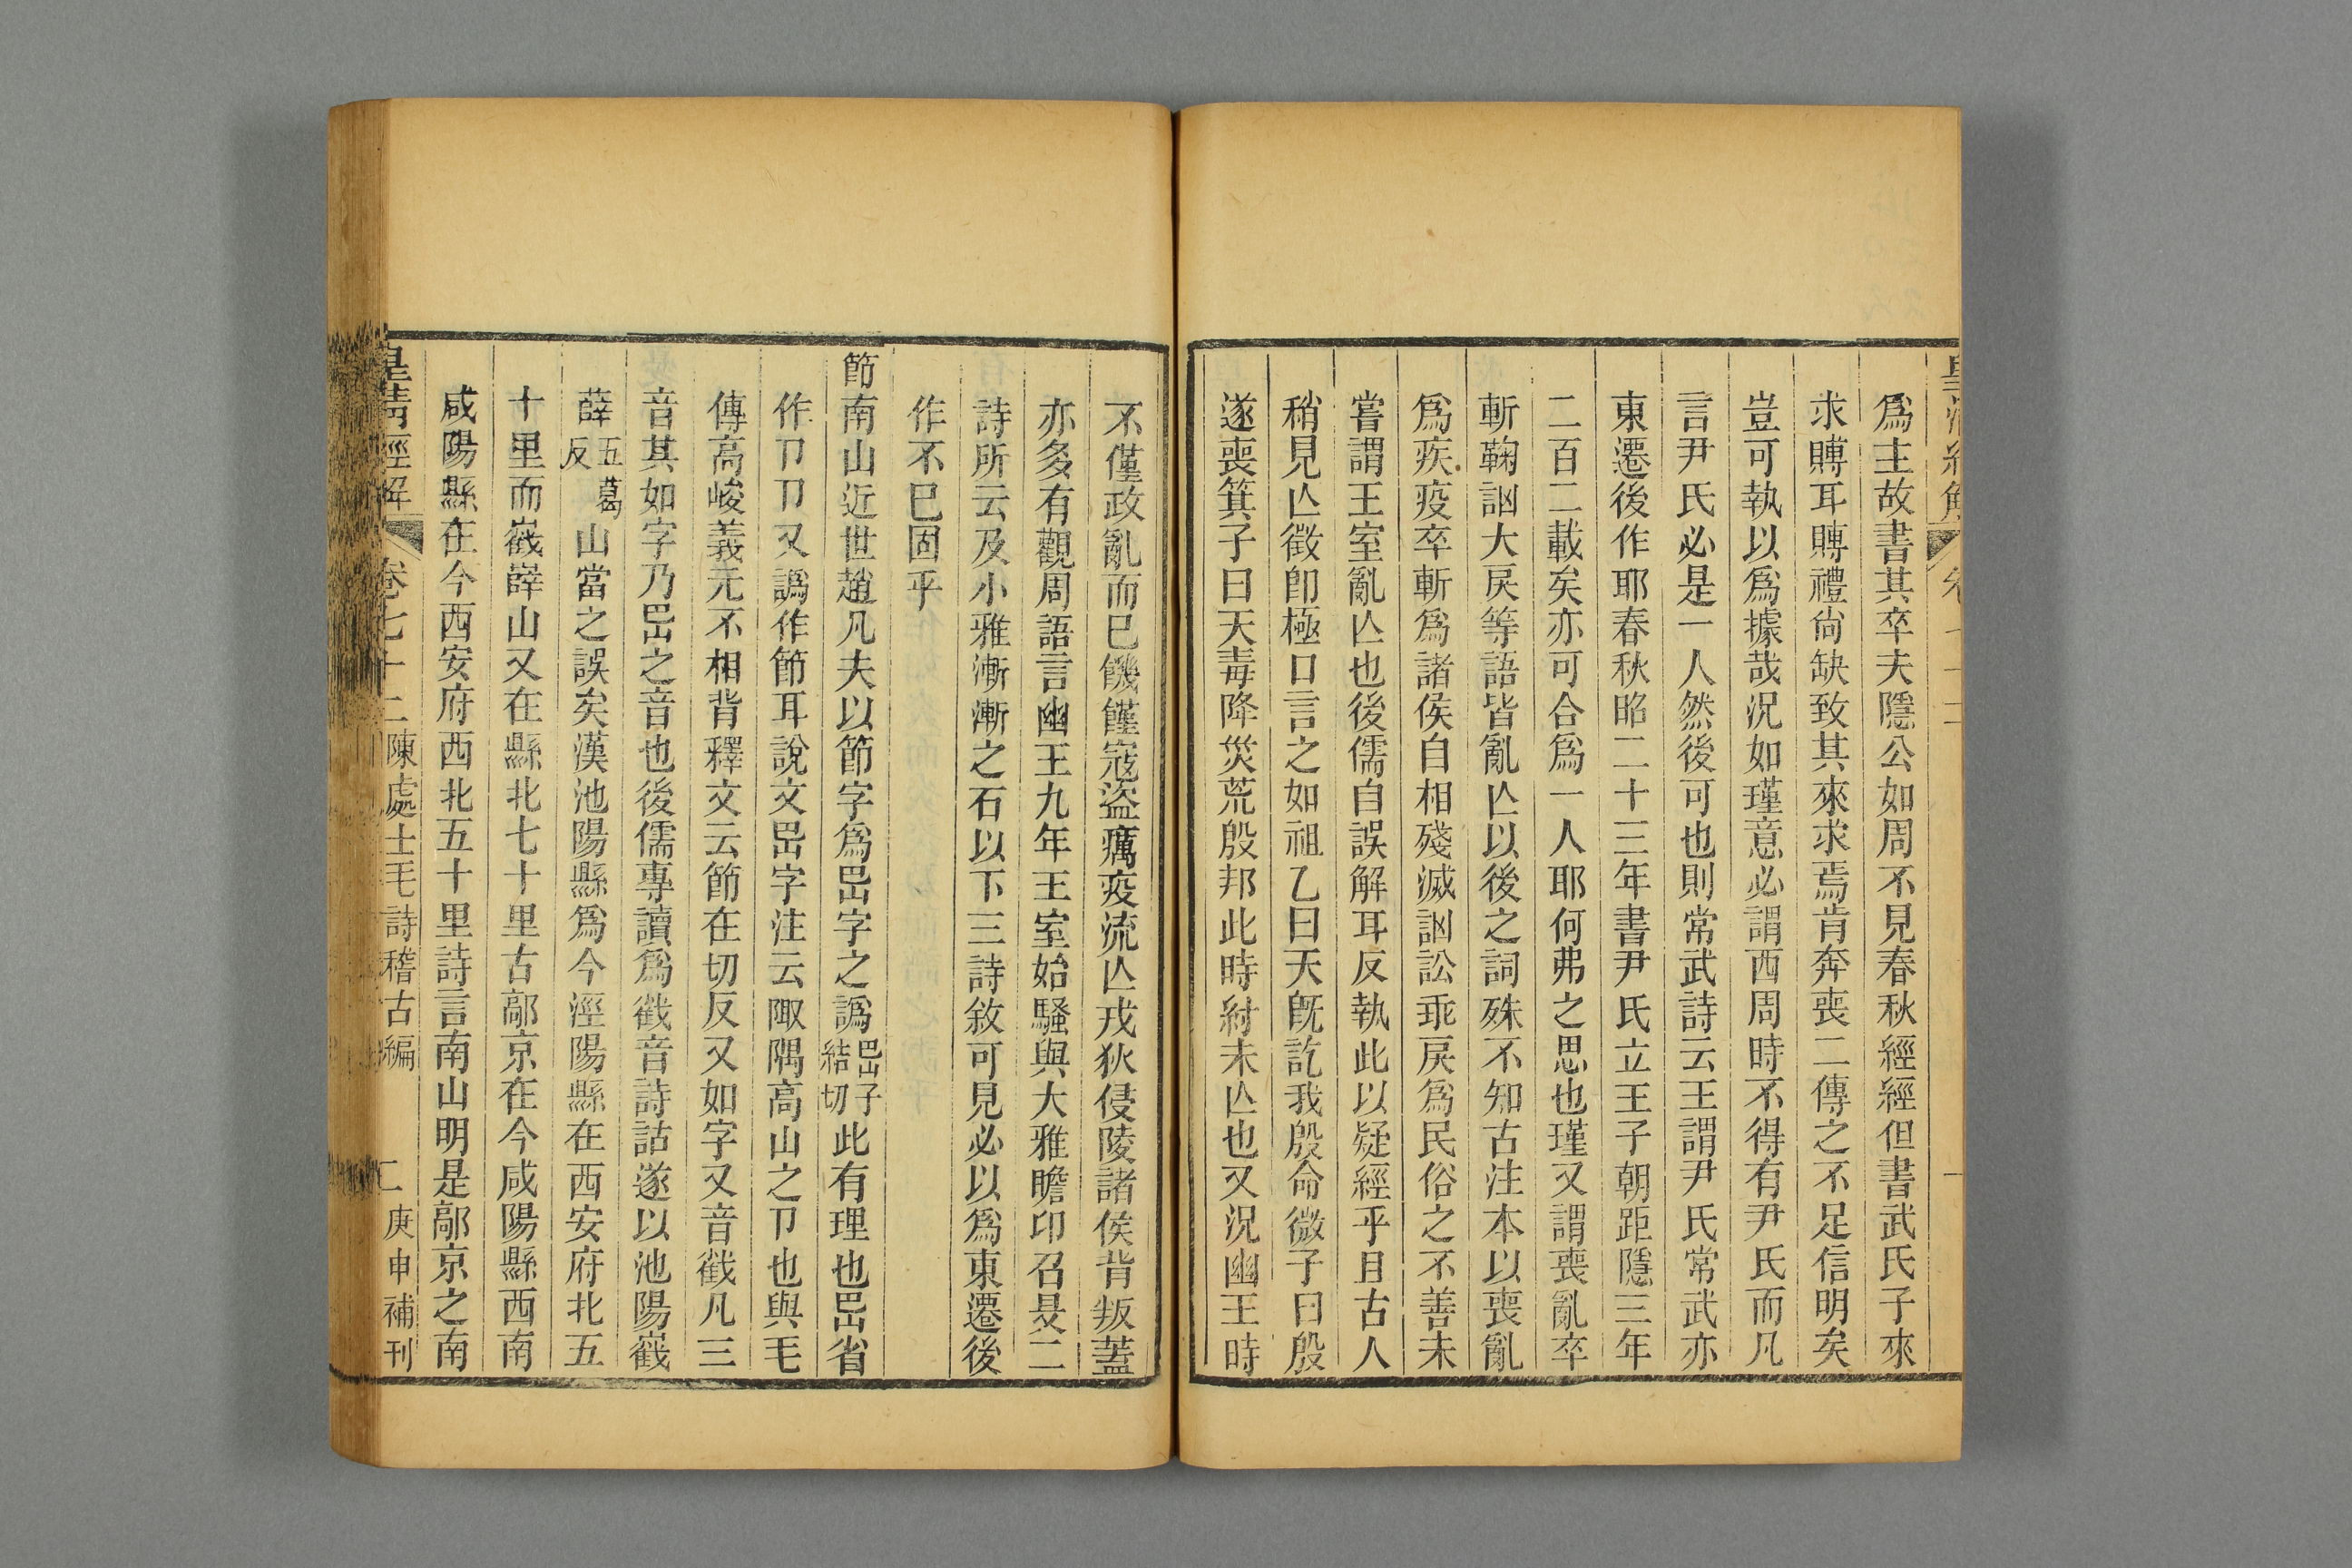 爲主故書其卒夫隱公如周不見春秋經經但書武氏子來
求賻耳賻禮尙缺致其來求焉肯奔喪二傳之不足信明矣
豈可執以爲據哉況如瑾意必謂西周時不得有尹氏而凡
言尹氏必是一人然後可也則常武詩云王謂尹氏常武亦
東遷後作耶春秋昭二十三年書尹氏立王子朝距隱三年
二百二載矣亦可合爲一人耶何弗之思也瑾又謂喪亂卒
斬鞠訩大戾等語皆亂亾以後之詞殊不知古注本以喪亂
爲疾疫卒斬爲諸侯自相殘滅訩訟乖戾爲民俗之不善未
嘗謂王室亂亾也後儒自誤解耳反執此以疑經乎且古人
稍見亾徵卽極口言之如祖乙曰天旣訖我殷命微子曰殷
遂喪箕子曰天毒降災荒殷邦此時紂未亾也又況幽王時
不僅政亂而已饑饉寇盜癘疫流亾戎狄侵陵諸侯背叛蓋
亦多有觀周語言幽王九年王室始騷與大雅瞻卬召旻二
詩所云及小雅漸漸之石以下三詩敘可見必以爲東遷後
作不已固乎
節南山近世趙凡夫以節字爲岊字之譌岊子結切此有理也岊省
作卩卩又譌作節耳說文岊字注云陬隅高山之卩也與毛
傳高峻義元不相背釋文云節在切反又如字又音截凡三
音其如字乃岊之音也後儒專讀爲截音詩詁遂以池陽嶻
嶭五葛反山當之誤矣漢池陽縣爲今涇陽縣在西安府北五
十里而嶻嶭山又在縣北七十里古鄗京在今咸陽縣西南
咸陽縣在今西安府西北五十里詩言南山明是鄗京之南
皇清經解 卷七十二 陳處士毛詩稽古編 二 庚申補刊